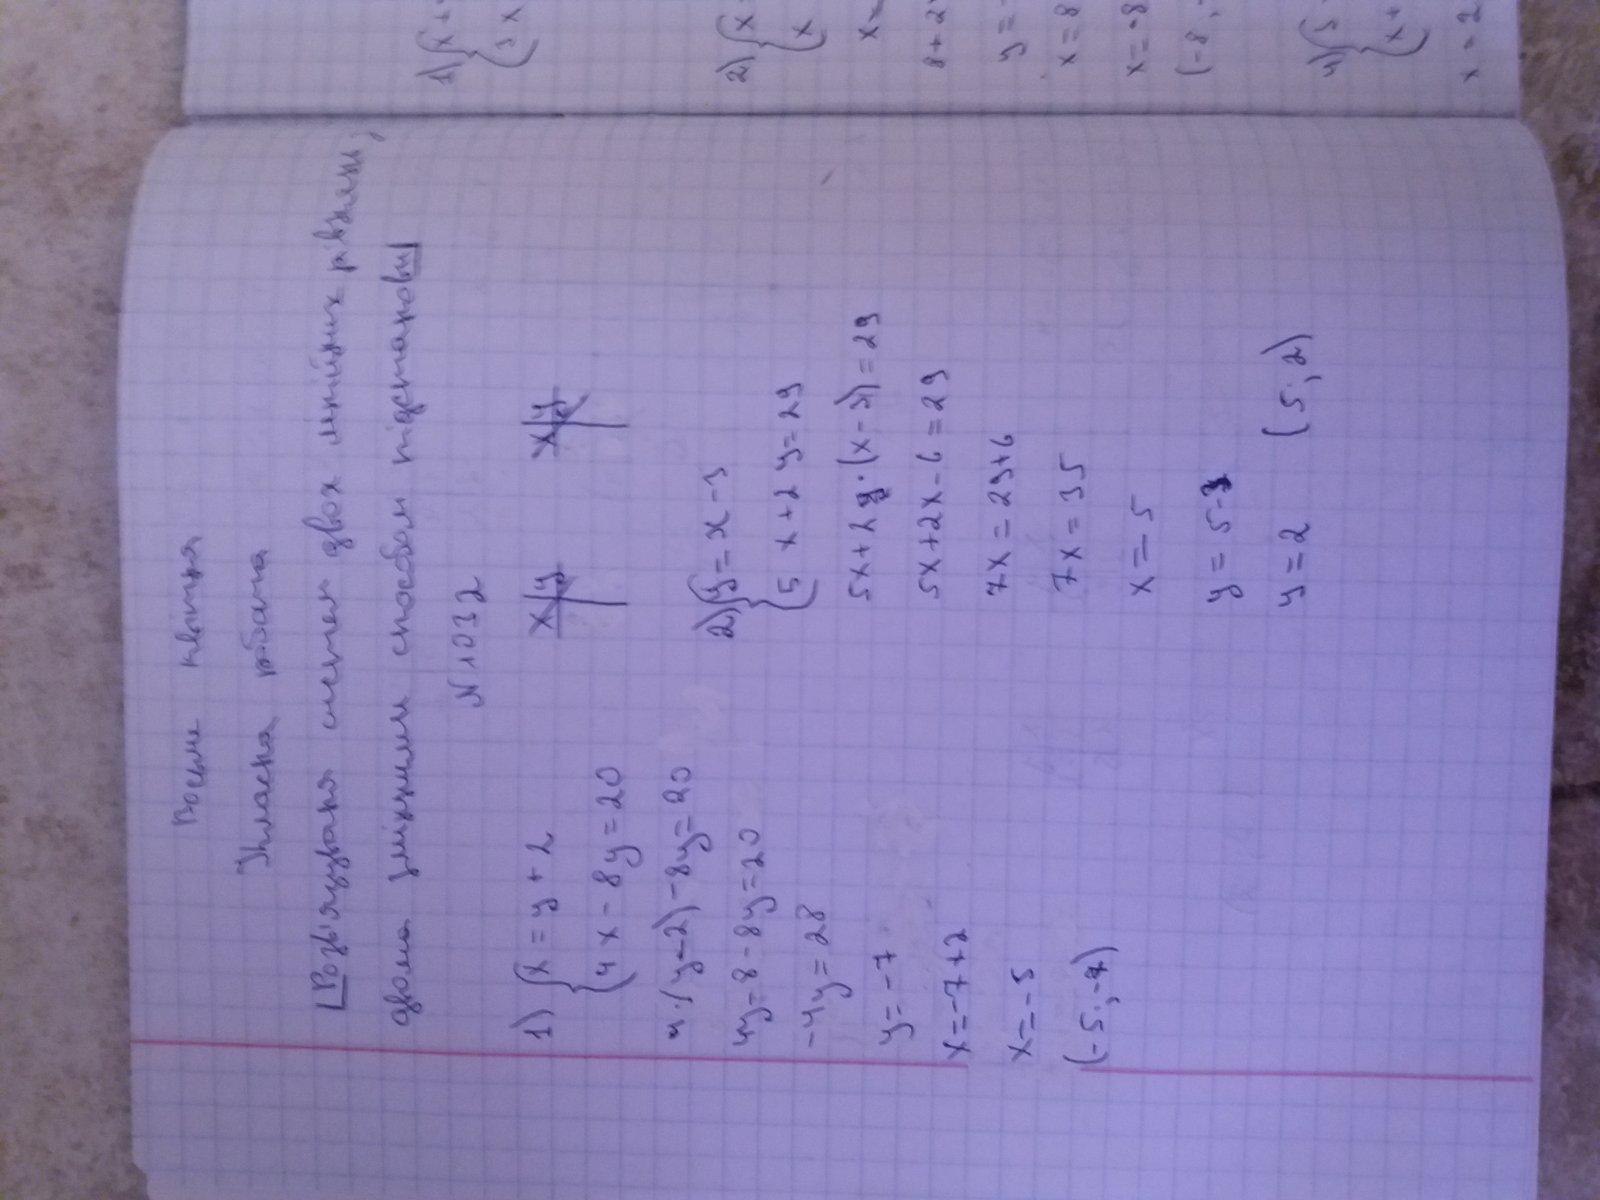 Восьме квітня
Класна робота
Розв'язування систем двох лінійних рівнянь,
двома змінними способом підстановки
N 1032
1) {x = y + 2
{4x - 8y = 20
4·(y-2) - 8y = 20
4y = 8 - 8y = 20
-4y = 28
y = -7
x = -7 + 2
x = -5
(-5; -7)
x|y
x|y
2) {y = x - 3
{5x + 2y = 29
5x + 2y·(x-3) = 29
5x + 2x - 6 = 29
7x = 29 + 6
7x = 35
x = 5
y = 5 - 3
y = 2 (5; 2)
1) {x +
{3x
2) {x
{x
x =
8 + 2
y = -
x = 8
x = -8
(-8;
4) {5
{x +
x = 2